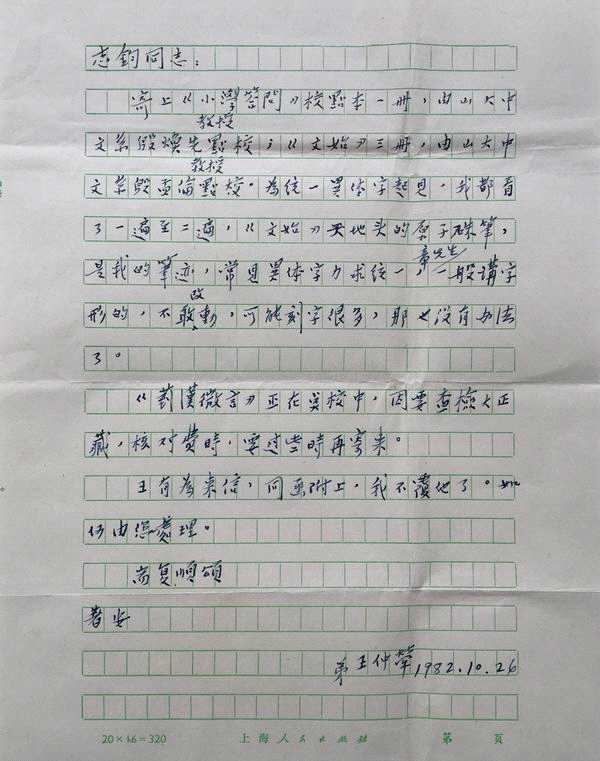 志钧同志：
寄上《小學答問》校點本一册，由山大中
教授
文系殷焕先點校；《文始》三册，由山大中
教授
文系殷孟倫點校。為統一異体字起見，我都看
了一遍至二遍，《文始》天地头的原子珠筆，
章先生
是我的筆迹，常見異体字力求統一，一般講字
改
形的，不敢動，可能刻字很多，那也没有办法
了。
《菿漢微言》正在覆校中，因要查檢大正
藏，核对費時，要过些時再寄来。
王有為来信，同函附上，我不覆他了。如
何由您處理。
耑复順頌
著安
弟王仲犖1982.10.26
20×16=320 上海人民出版社 第 頁